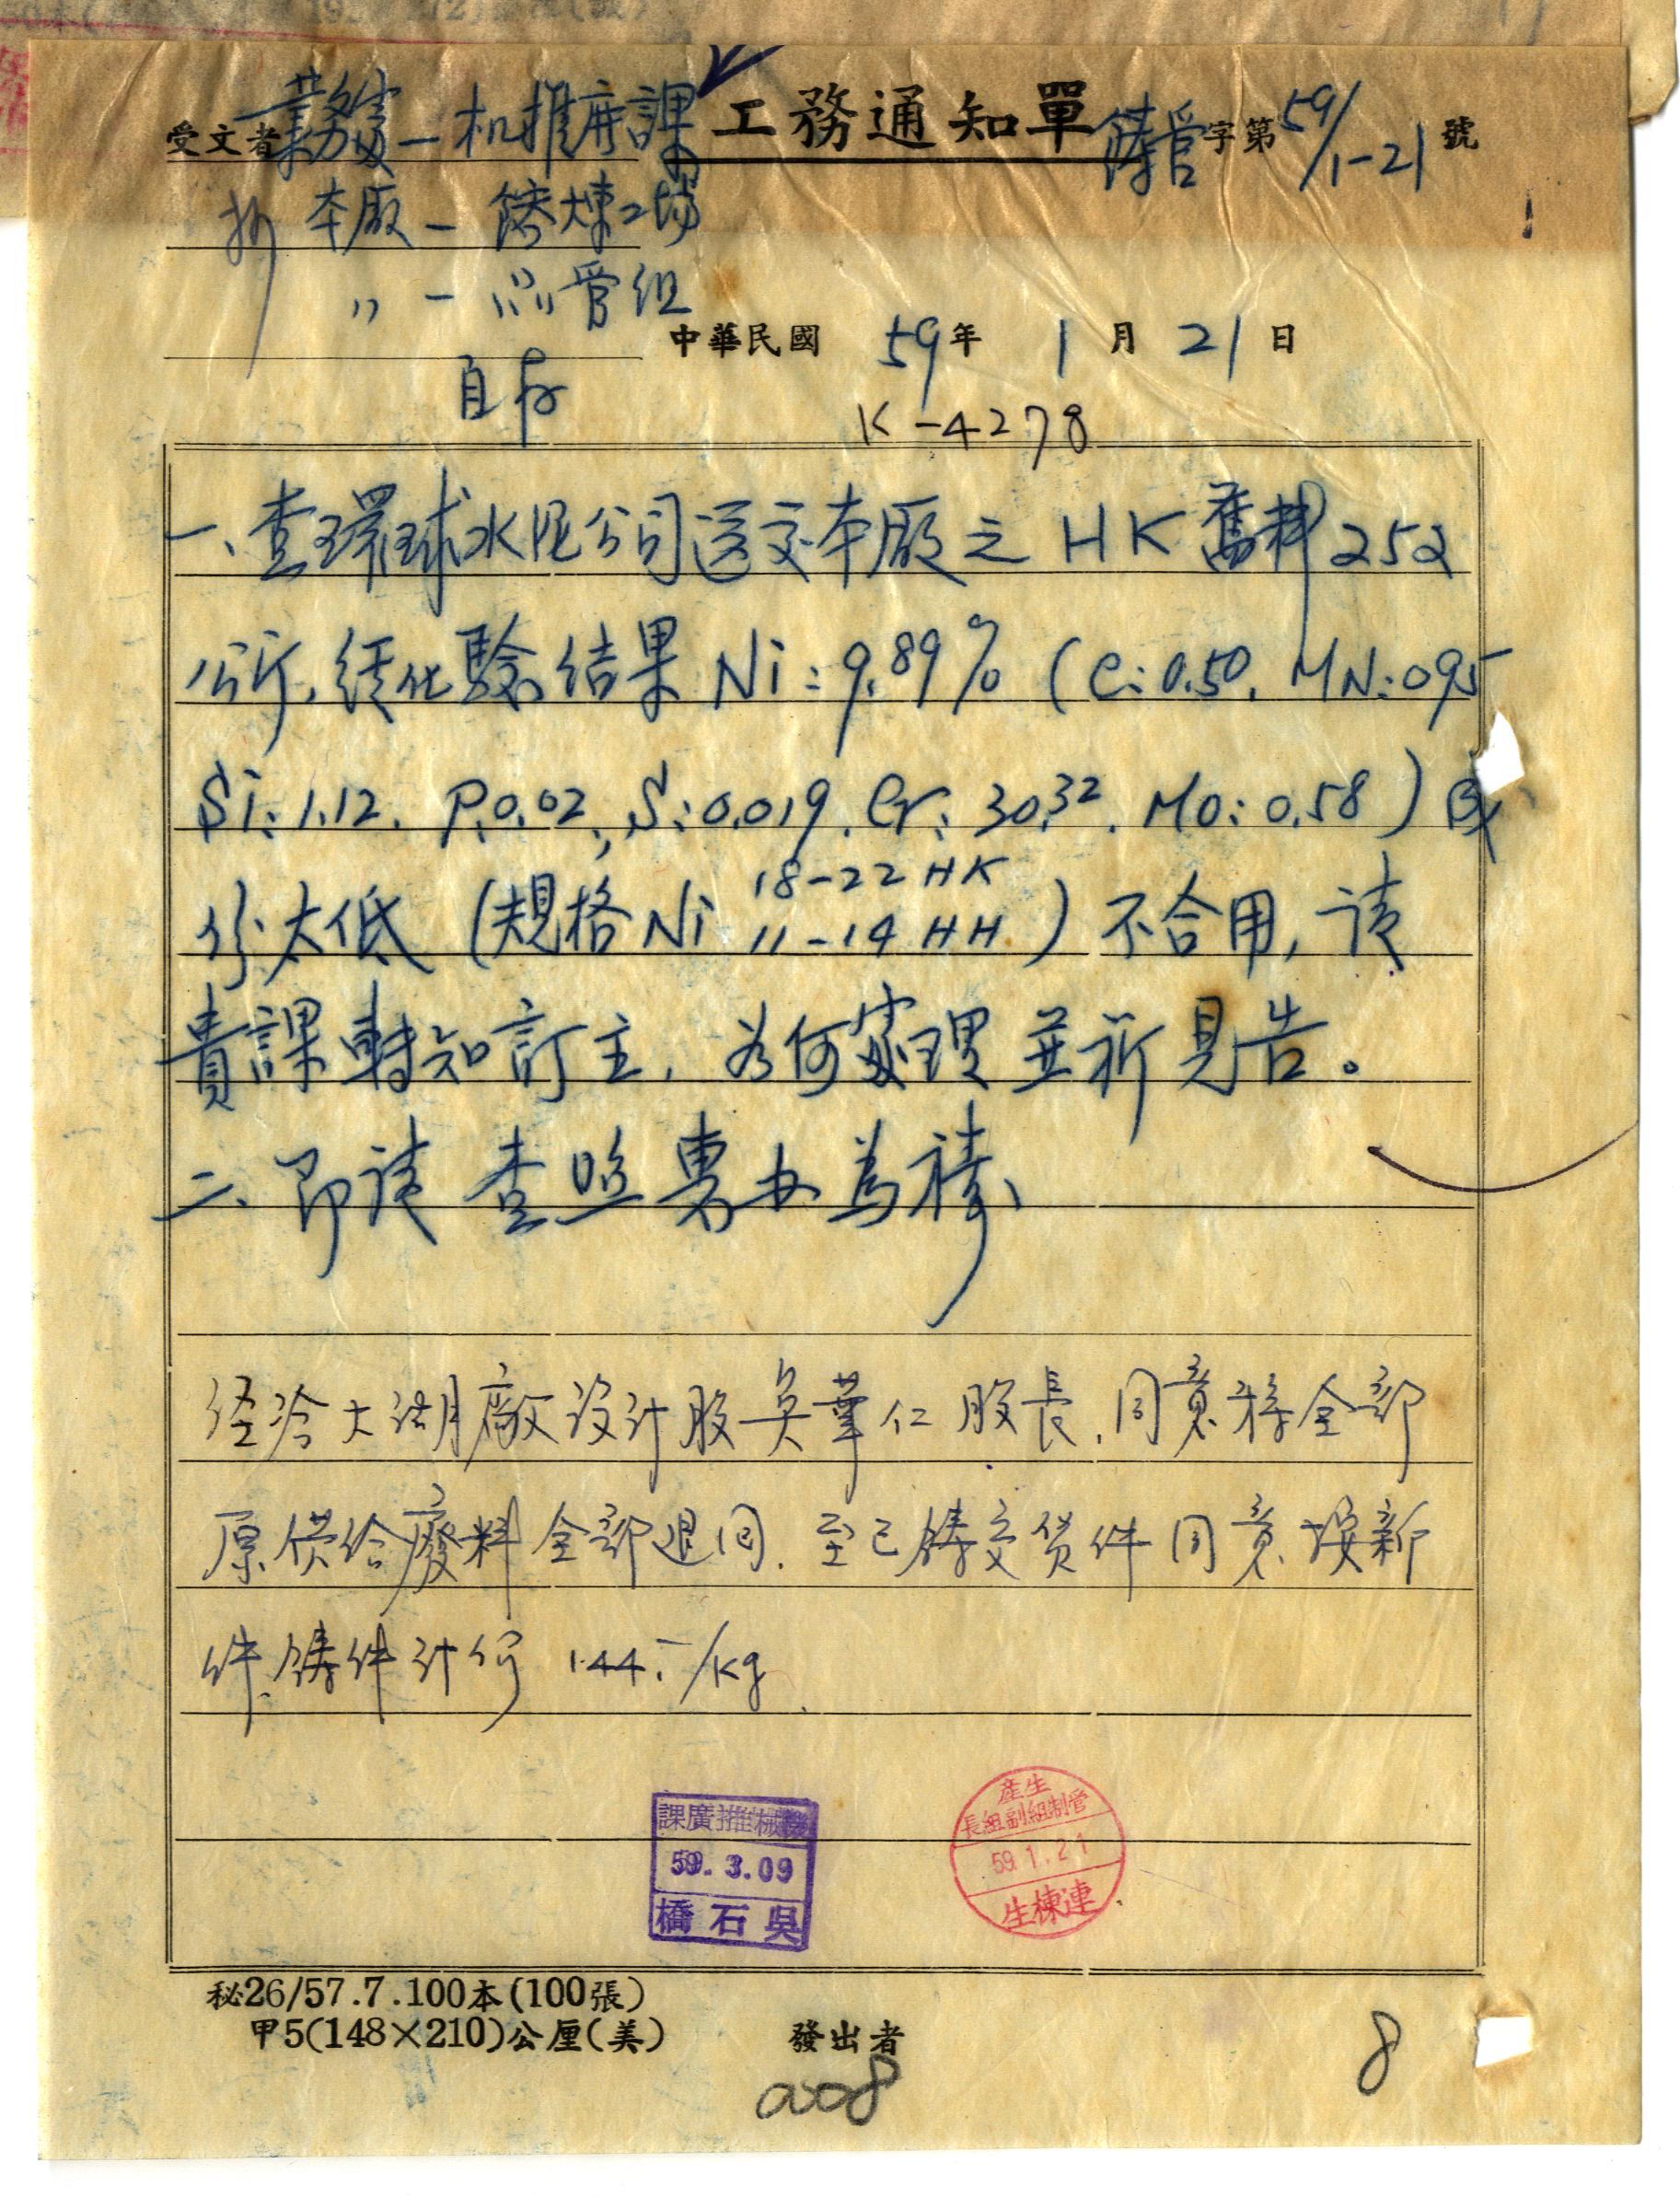 工務通知單
受文者 業務處—机推府課 鑄管字第59/1-21號
抄 本厰—鑄煉工場
〃—品管組
中華民國 59年 1月 21日
自存
K-4278
一、查環球水泥公司送交本厰之 HK 舊料 252
公斤, 經化驗結果 Ni:9.89% (C:0.50. MN:0.95
Si:1.12. P:0.02, S:0.019. Cr:30.32. Mo:0.58) 成
份太低 (規格 Ni 18-22 HK
11-14 HH) 不合用, 請
貴課轉知訂主, 如何處理並祈見告。
二、即請 查照惠办為禱、
經洽大湖廠設計股吳華仁股長, 同意將全部
原供給廢料全部退回. 至已鑄交貨件同意按新
件鑄件計價 144.-/kg.
課廣推械機
59.3.09
橋石吳
產生
長組副組制管
59.1.21
生棟連
秘26/57.7.100本(100張)
甲5(148×210)公厘(美)
發出者
008
8